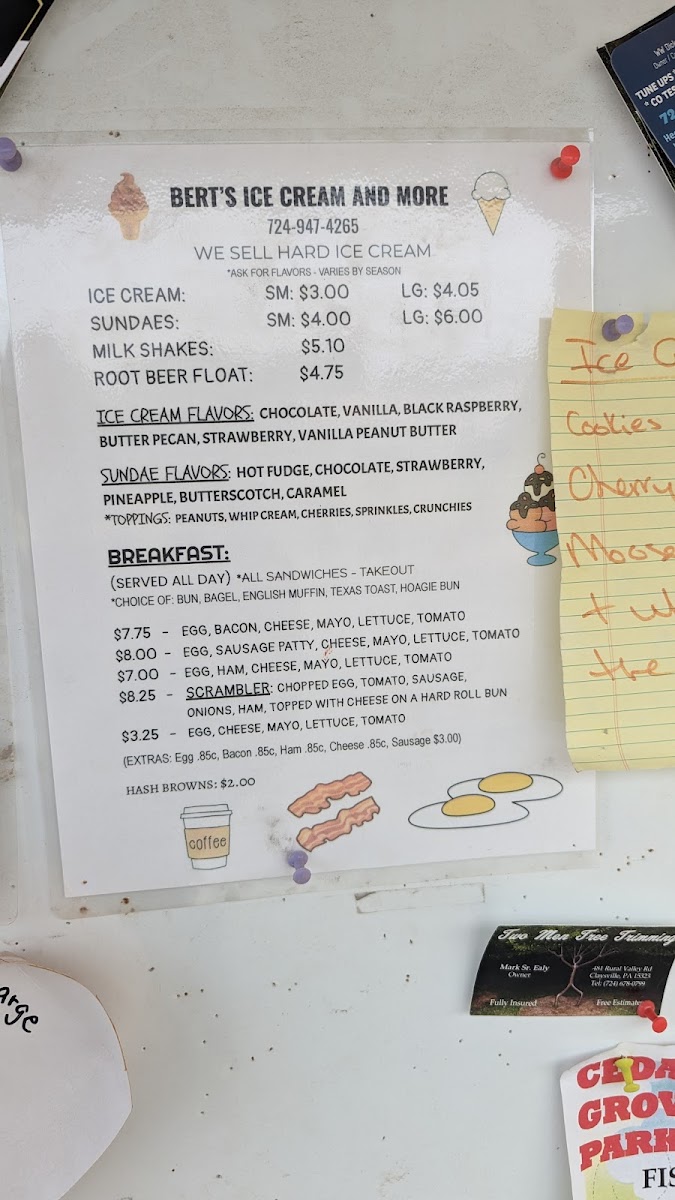 BERT'S ICE CREAM AND MORE
724-947-4265
WE SELL HARD ICE CREAM
*ASK FOR FLAVORS - VARIES BY SEASON
ICE CREAM: SM: $3.00 LG: $4.05
SUNDAES: SM: $4.00 LG: $6.00
MILK SHAKES: $5.10
ROOT BEER FLOAT: $4.75
ICE CREAM FLAVORS: CHOCOLATE, VANILLA, BLACK RASPBERRY,
BUTTER PECAN, STRAWBERRY, VANILLA PEANUT BUTTER
SUNDAE FLAVORS: HOT FUDGE, CHOCOLATE, STRAWBERRY,
PINEAPPLE, BUTTERSCOTCH, CARAMEL
*TOPPINGS: PEANUTS, WHIP CREAM, CHERRIES, SPRINKLES, CRUNCHIES
BREAKFAST:
(SERVED ALL DAY) *ALL SANDWICHES - TAKEOUT
*CHOICE OF: BUN, BAGEL, ENGLISH MUFFIN, TEXAS TOAST, HOAGIE BUN
$7.75 - EGG, BACON, CHEESE, MAYO, LETTUCE, TOMATO
$8.00 - EGG, SAUSAGE PATTY, CHEESE, MAYO, LETTUCE, TOMATO
$7.00 - EGG, HAM, CHEESE, MAYO, LETTUCE, TOMATO
$8.25 - SCRAMBLER: CHOPPED EGG, TOMATO, SAUSAGE,
ONIONS, HAM, TOPPED WITH CHEESE ON A HARD ROLL BUN
$3.25 - EGG, CHEESE, MAYO, LETTUCE, TOMATO
(EXTRAS: Egg .85c, Bacon .85c, Ham .85c, Cheese .85c, Sausage $3.00)
HASH BROWNS: $2.00
coffee
Ice C
Cookies
Cherry
Moose
+ W
the
TUNE UPS
* CO TES
Two Men Tree Trimming
Mark Sr. Ealy
Owner
481 Rural Valley Rd
Claysville, PA 15323
Tel: (724) 678-0799
Fully Insured
Free Estimate
arge
CEDA
GROV
PARK
FIS